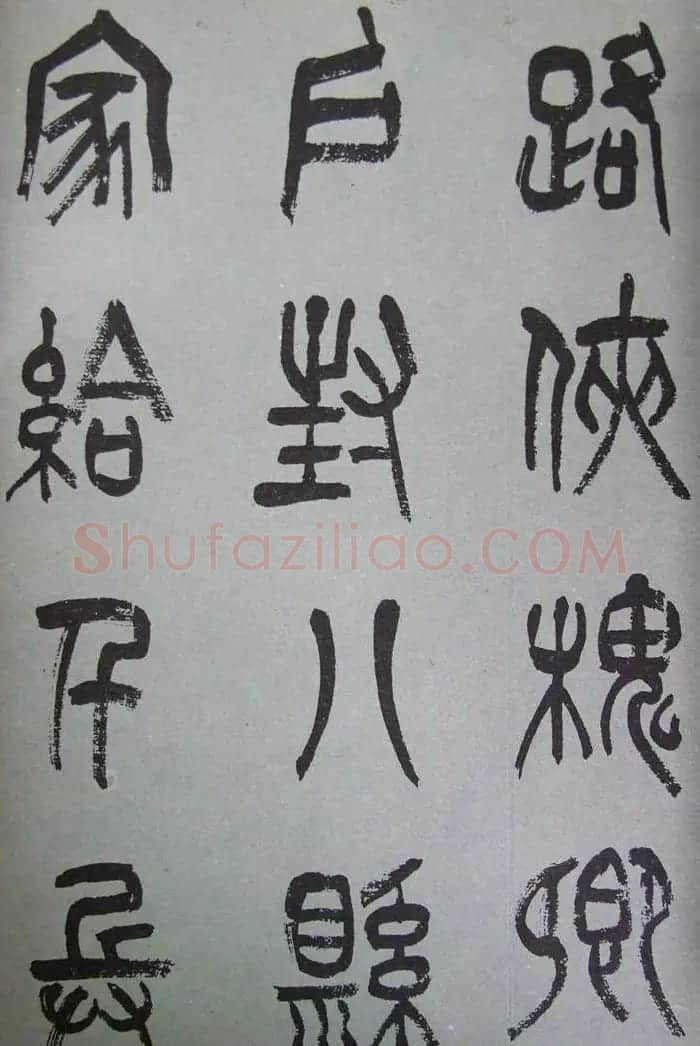 路俠槐卿
户封八縣
家給千兵
Shufaziliao.COM